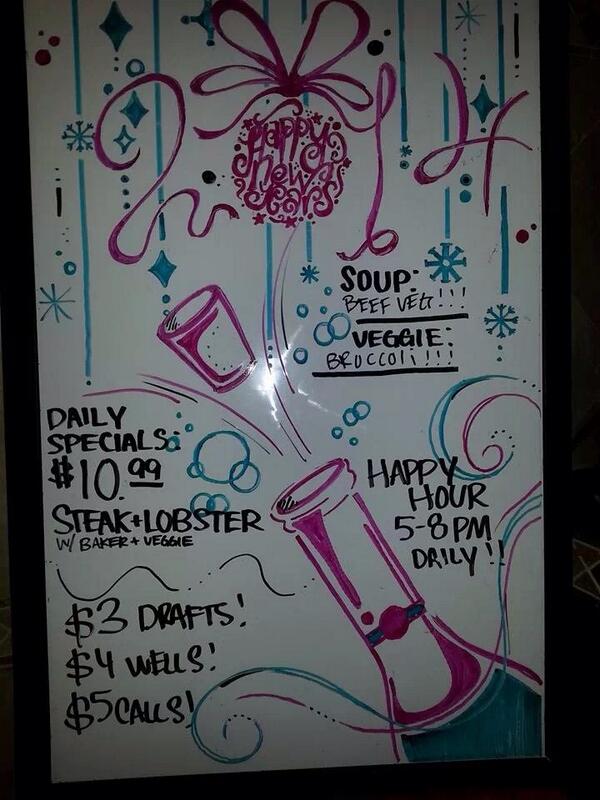 2014
Happy
new
years
SOUP:
BEEF VEG!!!
VEGGIE:
BROCCOLI!!!
DAILY
SPECIALS:
$10.99
STEAK+LOBSTER
W/ BAKER+VEGGIE
$3 DRAFTS!
$4 WELLS!
$5 CALLS!
HAPPY
HOUR
5-8PM
DAILY!!